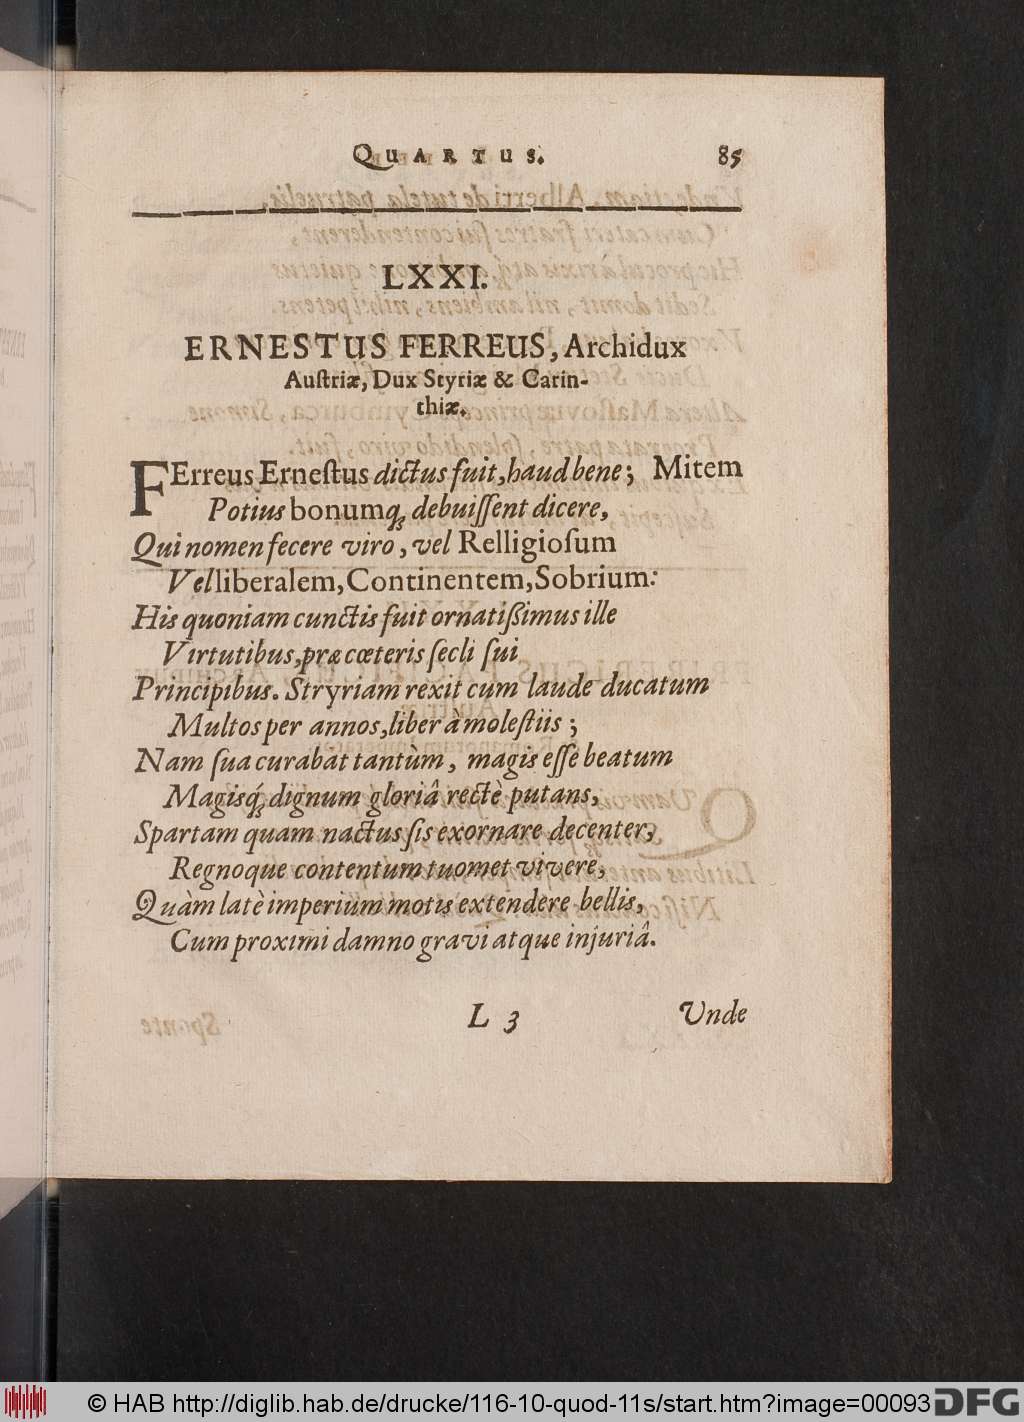 QUARTUS. 85
LXXI.
ERNESTUS FERREUS, Archidux
Auſtriæ, Dux Styriæ & Carin-
thiæ.
FErreus Erneſtus dictus fuit, haud bene; Mitem
Potius bonumq́; debuiſſent dicere,
Qui nomen fecere viro, vel Relligioſum
Vel liberalem, Continentem, Sobrium:
His quoniam cunctis fuit ornatißimus ille
Virtutibus, præ cœteris ſecli ſui
Principibus. Stryriam rexit cum laude ducatum
Multos per annos, liber à moleſtiis;
Nam ſua curabat tantùm, magis eſſe beatum
Magisq́; dignum gloriâ rectè putans,
Spartam quam nactus ſis exornare decenter,
Regnoque contentum tuomet vivere,
Quàm latè imperium motis extendere bellis,
Cum proximi damno gravi atque injuriâ.
L 3 Unde
© HAB http://diglib.hab.de/drucke/116-10-quod-11s/start.htm?image=00093
DFG